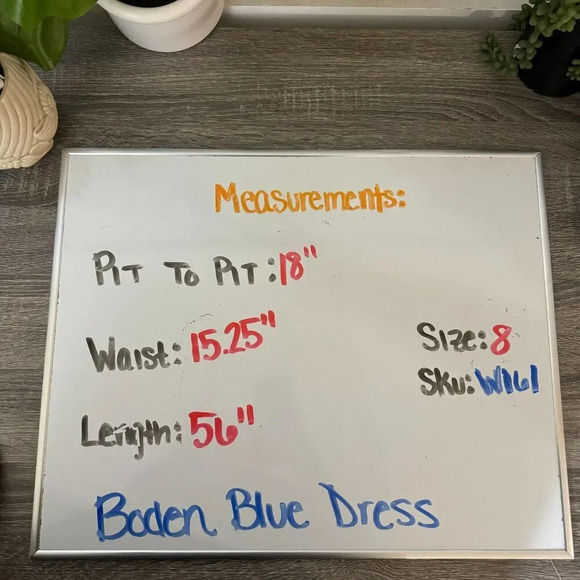 Measurements:
Pit To Pit: 18"
Waist: 15.25"
Size: 8
Sku: W161
Length: 56"
Boden Blue Dress